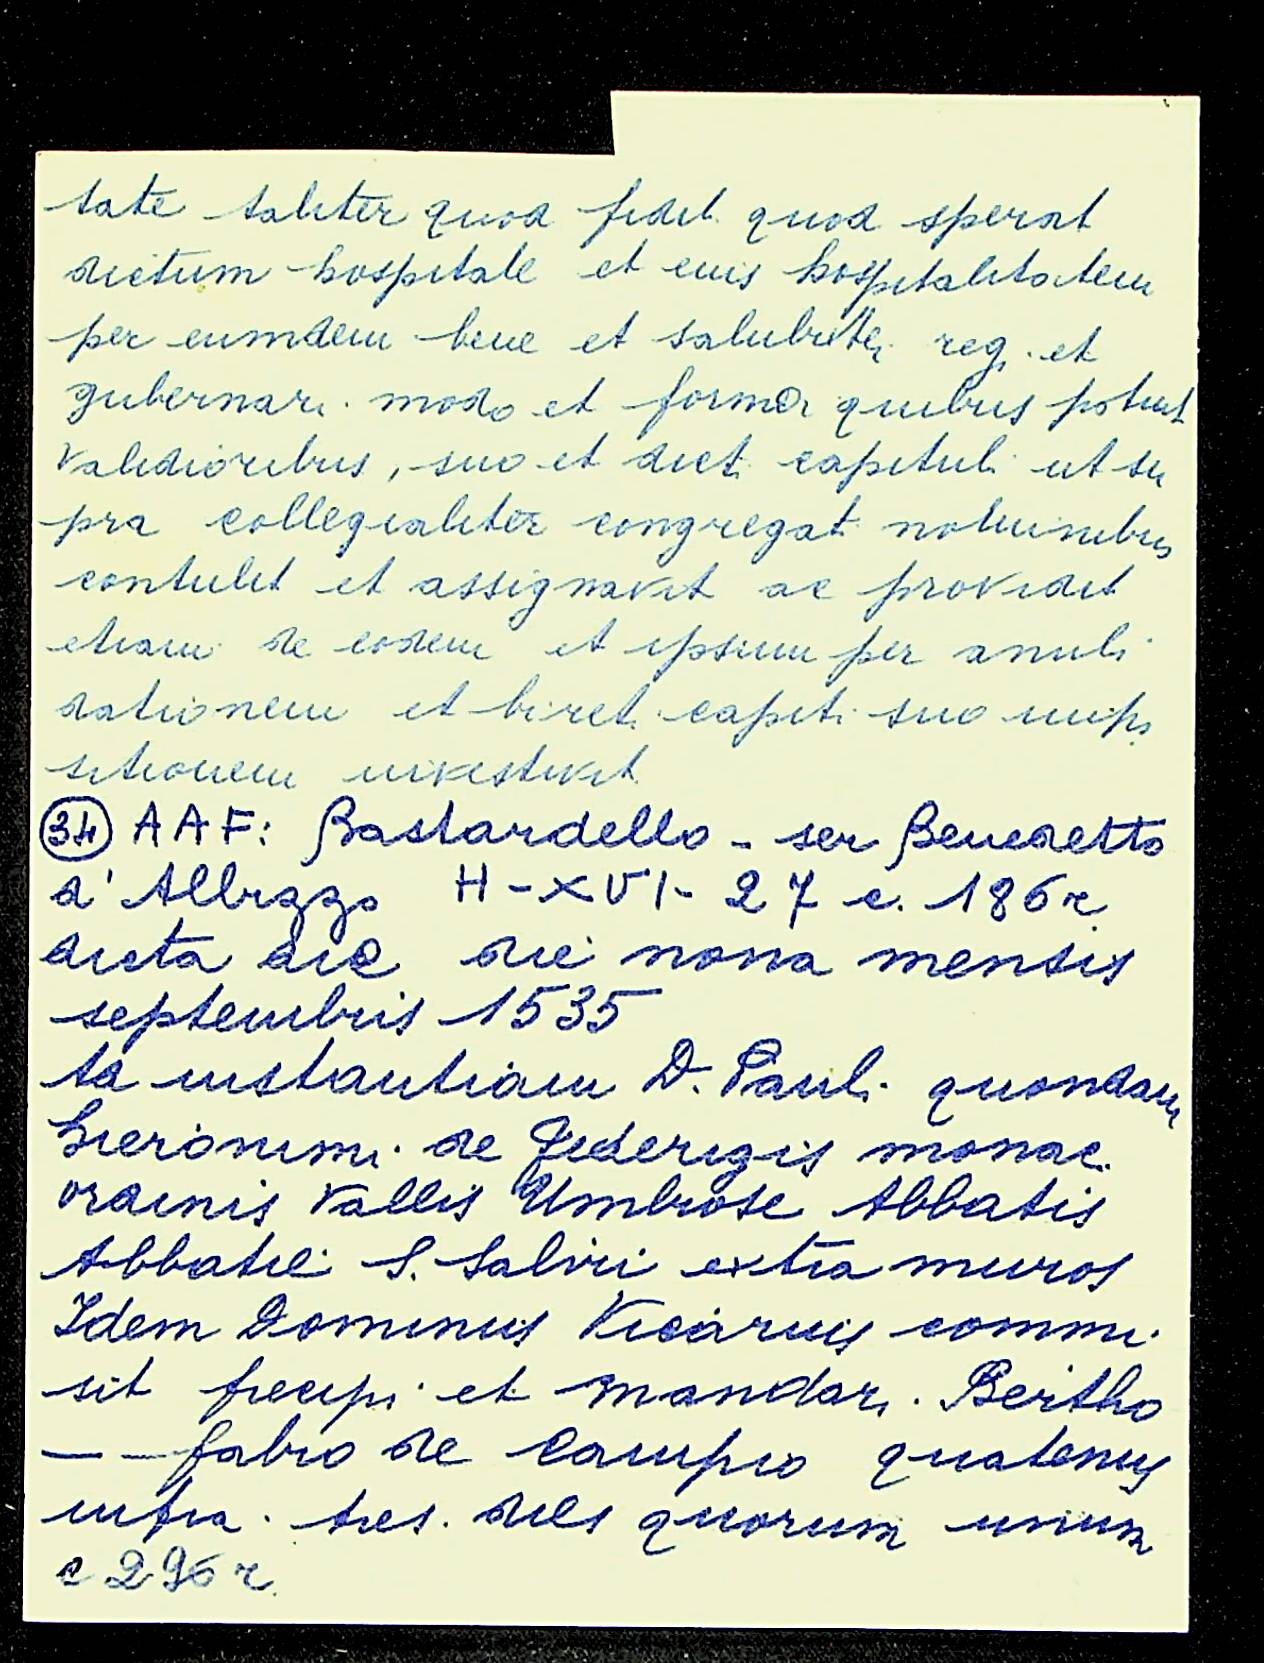 tate taliter quod fidit quod sperat
dictum hospitale et eius hospitalitatem
per eumdem bene et salubriter reg. et
gubernari. modo et forma quibus potuit
validioribus, suo et dict. capituli ut su
pra collegialiter congregat. nominibus
contulit et assignavit ac providit
etiam de eodem et ipsum per anuli
dationem et biret. capiti suo impo
sitionem investivit
(34) AAF: Bastardello - ser Benedetto
d'Albizzo H-XVI-27 c. 186r
dicta die die nona mensis
septembris 1535
ta instantiam D. Pauli quondam
Hieronimi de Federigis monac.
ordinis Vallis Umbrose Abbatis
Abbatie S. Salvii extra muros
Idem Dominus Vicarius commi
sit precipi et mandari. Bertho
— — fabro de Campio quatenus
infra. tres. dies quorum unum
c 296 r.